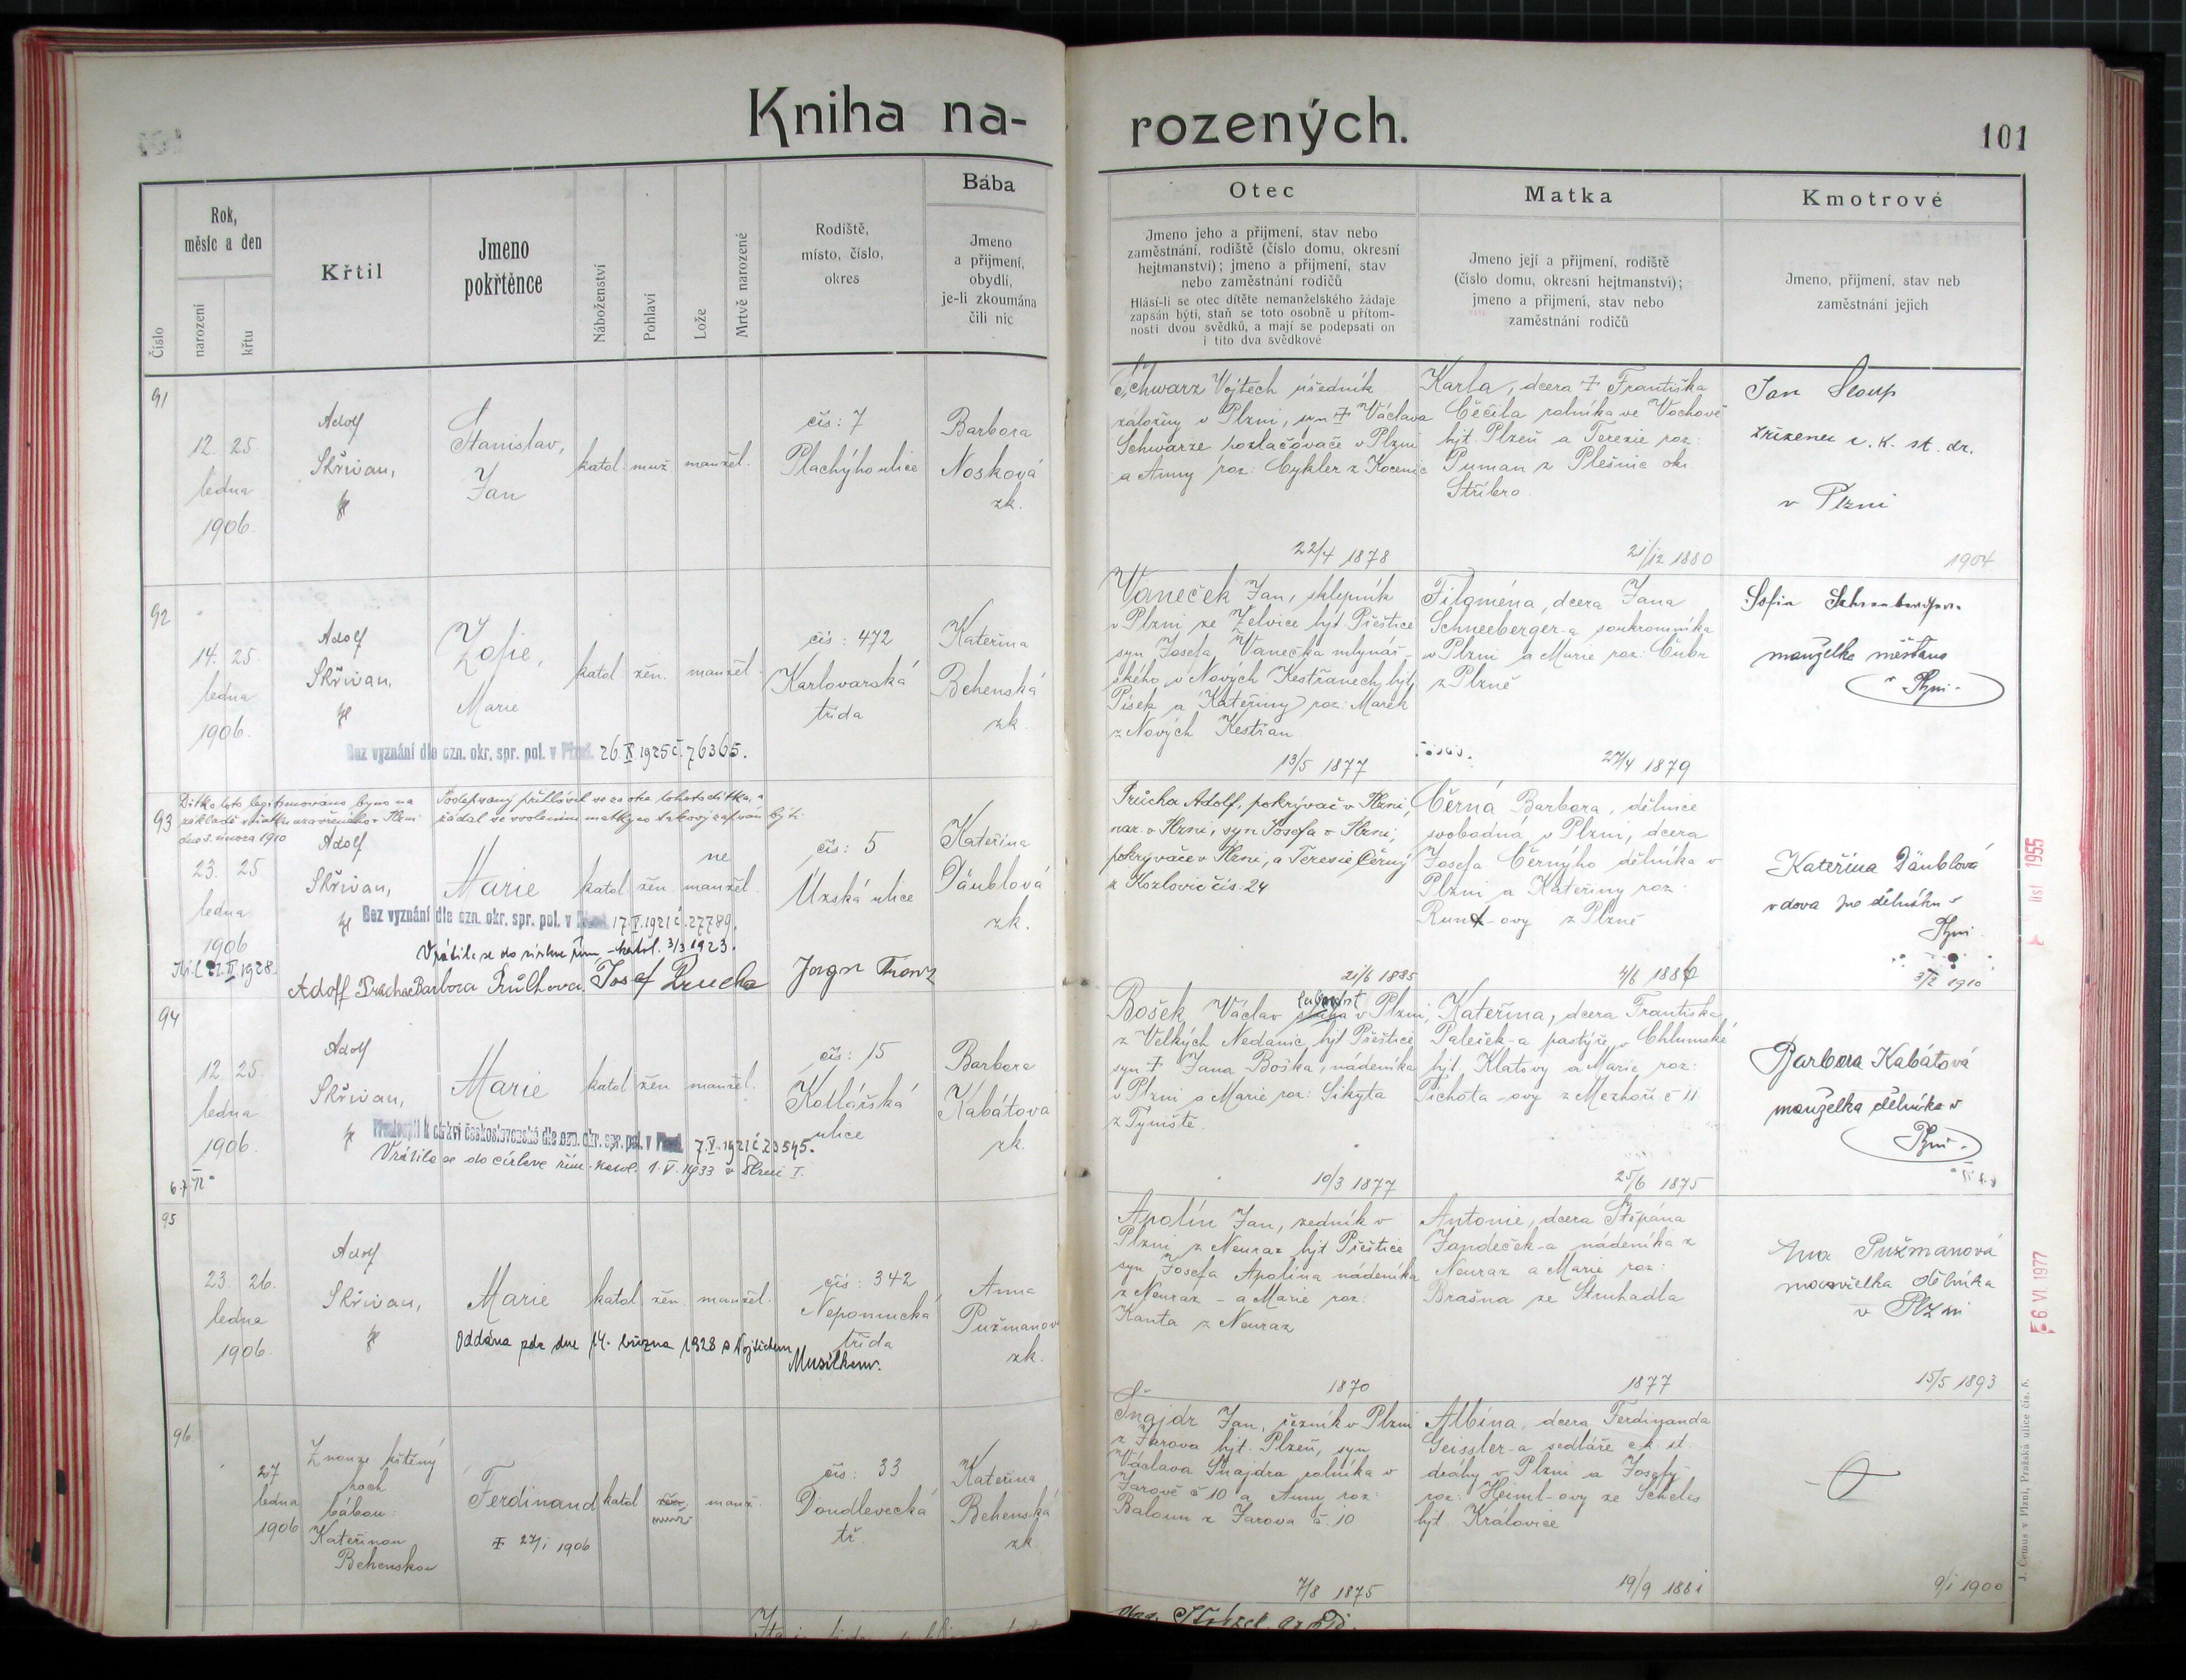 Kniha na-
rozených.
101
Číslo
Rok,
měsíc a den
narození
křtu
Křtil
Jmeno
pokřtěnce
Náboženství
Pohlaví
Lože
Mrtvě narozené
Rodiště,
místo, číslo,
okres
Bába
Jmeno
a příjmení,
obydlí,
je-li zkoumána
čili nic
Otec
Jmeno jeho a příjmení, stav nebo
zaměstnání, rodiště (číslo domu, okresní
hejtmanství); jmeno a příjmení, stav
nebo zaměstnání rodičů
Hlásí-li se otec dítěte nemanželského žádaje
zapsán býti, staň se toto osobně u přítom-
nosti dvou svědků, a mají se podepsati on
i tito dva svědkové
Matka
Jmeno její a příjmení, rodiště
(číslo domu, okresní hejtmanství);
jmeno a příjmení, stav nebo
zaměstnání rodičů
Kmotrové
Jmeno, příjmení, stav neb
zaměstnání jejich
91
12. 25.
ledna
1906.
Adolf
Skřivan,
Stanislav,
Jan
katol. muž. manžel.
čís: 7
Plachýho ulice
Barbora
Nosková
zk.
Schwarz Vojtech úředník
záložny v Plzni, syn ‡ Václava
Schwarze pozlačovače v Plzni
a Anny roz: Cykler z Kocenic
22/4 1878
Karla, dcera ‡ Františka
Čečila rolníka ve Vochově
hjt. Plzeň a Terezie roz:
Puman z Plešnic okr.
Stříbro.
21/12 1880
Jan Sloup
zřízenec c. k. st. dr.
v Plzni
1904
92
14. 25.
ledna
1906.
Adolf
Skřivan,
Žofie,
Marie
katol. žen. manžel.
čís: 472
Karlovarská
třída
Kateřina
Behenská
zk.
Bez vyznání dle ozn. okr. spr. pol. v Plzni. 26. X. 1925 č. 76365.
Vaneček Jan, sklepník
v Plzni ze Želvice hjt. Přeštice
syn Josefa Vanečka mlynář-
ského v Nových Kestřanech hjt.
Písek a Kateřiny roz: Marek
z Nových Kestřan
13/5 1877
Filoména, dcera Jana
Schneeberger-a soukromníka
v Plzni a Marie roz: Čubr
z Plzně
27/4 1879
Sofie
manželka měšťana
v Plzni
93
Dítko toto legitimováno bylo na
základě sňatku uzavřeného v Plzni
dne 3. února 1910
Podepsaný přihlásil se za otce tohoto dítka, a
žádal se svolením matky co takový zapsán býti.
23. 25
ledna
1906
Adolf
Skřivan,
Marie
katol. žen. ne
manžel.
čís: 5
Úzská ulice
Kateřina
Däublová
zk.
Bez vyznání dle ozn. okr. spr. pol. v Plzni 17. V. 1921 č. 27789.
Vrátila se do církve řím.-katol. 3/3 1923.
Adolf Průcha Barbora Průchova Josef Prucha
Průcha Adolf, pokrývač v Plzni,
nar. v Plzni, syn Josefa v Plzni,
pokrývače v Plzni, a Terezie Černý
z Kozlovic čís. 24
21/6 1885
Černá Barbora, dělnice
svobodná v Plzni, dcera
Josefa Černýho dělníka v
Plzni a Kateřiny roz:
-ovy z Plzně
4/6 1886
Kateřina Däublová
vdova po dělníku v
Plzni
3/2 1910
list 1955
94
12 25.
ledna
1906.
Adolf
Skřivan,
Marie
katol. žen. manžel.
čís: 15
Kollářská
ulice
Barbora
Kabátova
zk.
Přestoupil k církvi československé dle ozn. okr. spr. pol. v Plzni. 7. V. 1921 č 23545.
Vrátila se do církve řím.-katol. 1. V. 1933 v Plzni I.
Bošek Václav v Plzni,
z Velkých Nedanic, hjt. Přeštice
syn ‡ Jana Boška, nádeníka
v Plzni a Marie roz: Sikyta
z Týniště.
10/3 1877
Kateřina, dcera Františka
Paleček-a pastýře v Chlumské
hjt. Klatovy a Marie roz:
Tichota-ovy z Mezhoří č 11
25/6 1875
Barbora Kabátová
manželka dělníka v
Plzni.
95
23. 26.
ledna
1906.
Adolf
Skřivan,
Marie
katol. žen. manžel.
čís: 342
Nepomucká
třída
Anna
Pužmanov
zk.
Oddána zde dne 14. března 1928 s Vojtěchem
Musílkem.
Apolín Jan, zedník v
Plzni z Neuraz hjt. Přeštice
syn Josefa Apolína nádeníka
z Neuraz – a Marie roz:
Kanta z Neuraz
1870
Antonie, dcera Štěpána
Jandeček-a nádeníka z
Neuraz a Marie roz:
Brašna ze Struhadla
1877
Ana Pužmanová
manželka dělníka
v Plzni
15/5 1893
6. VI. 1977
96
27
ledna
1906
Z nouze křtěný
hoch
bábou:
Kateřinou
Behenskou
Ferdinand
‡ 27/1 1906
katol. žen. manž.
muž.
čís: 33
Doudlevecká
tř.
Kateřina
Behenská
zk
Šnajdr Jan, řezník v Plzni
z Žarova hjt. Plzeň, syn
Václava Šnajdra rolníka v
Žarově č 10 a Anny roz:
Baloun z Žarova č. 10
7/8 1875
Albína, dcera Ferdinanda
Geissler-a sedláře c.k. st.
dráhy v Plzni a Josefy
roz: Heiml-ovy ze Scheles
hjt. Kralovice
19/9 1881
9/1 1900
J. Čemus v Plzni, Pražská ulice čís. 5.